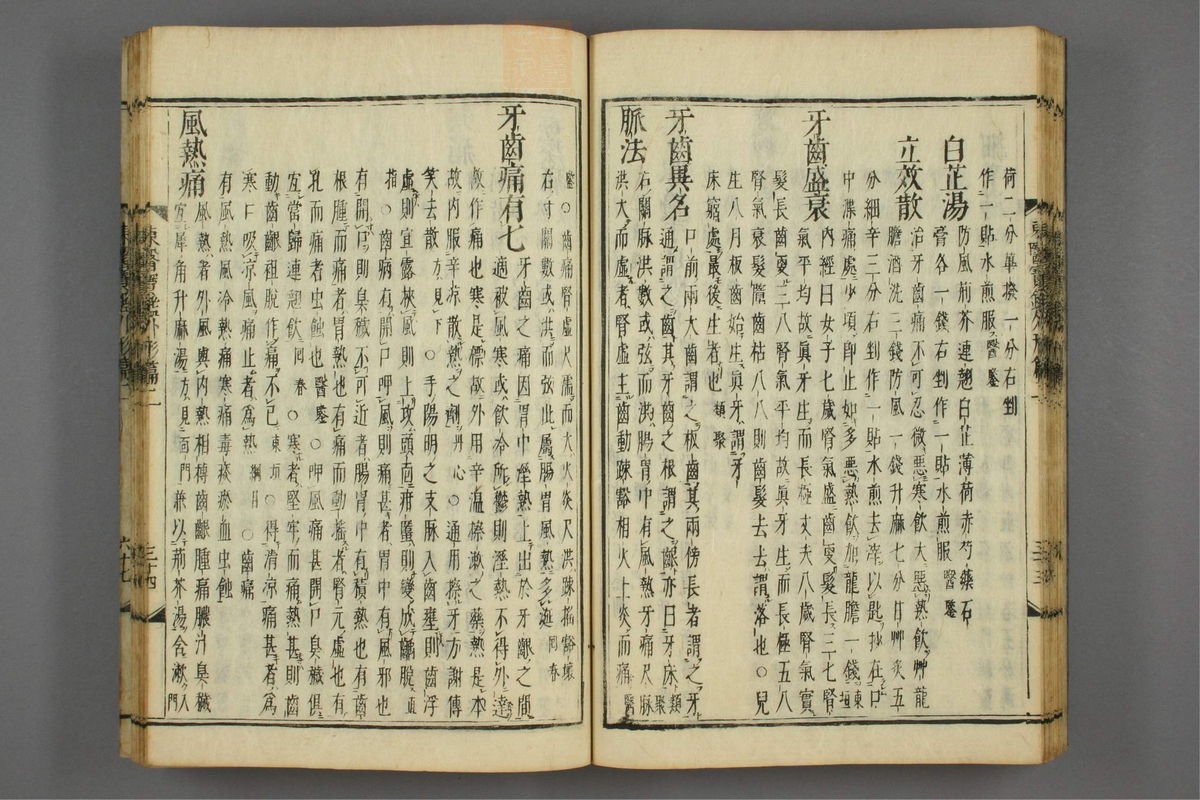 荷二分蓽撥一分右剉
作一貼水煎服醫鑒
白芷湯
防風荊芥連翹白芷薄荷赤芍藥石
膏各一錢右剉作一貼水煎服醫鑒
立效散
治牙齒痛不可忍微惡寒飲大惡熱飲艸龍
膽酒洗三錢防風一錢升麻七分甘艸炙五
分細辛三分右剉作一貼水煎去滓以匙抄在口
中渫痛處少項卽止如多惡熱飲加龍膽一錢東垣
牙齒盛衰
內經曰女子七歲腎氣盛齒更髮長三七腎
氣平均故眞牙生而長極丈夫八歲腎氣實
髮長齒更三八腎氣平均故眞牙生而長極五八
腎氣衰髮墮齒枯八八則齒髮去去謂落也○兒
生八月板齒始生眞牙謂牙
床窮處最後生者也類聚
牙齒異名
口前兩大齒謂之板齒其兩傍長者謂之牙
通謂之齒其牙齒之根謂之齗亦曰牙床類聚
脈法
右關脈洪數或弦而洪腸胃中有風熱牙痛尺脈
洪大而虛者腎虛主齒動踈豁相火上炎而痛醫
鑒○齒痛腎虛尺濡而大火炎尺洪踈搖豁壞
右寸關數或洪而弦此屬腸胃風熱多涎回春
牙齒痛有七
牙齒之痛因胃中濕熱上出於牙齗之間
適被風寒或飮冷所鬱則溼熱不得外達
故作痛也寒是僄故外用辛温擦漱之藥熱是本
故內服辛凉散熱之劑丹心○通用擦牙方謝傳
笑去散方見下○手陽明之支脈入齒壅則齒浮
虛則宣露挾風則上攻頭面疳䘌則變成齲脫直
指○齒病有開口呷風則痛甚者胃中有風邪也
有開口則臭穢不可近者腸胃中有積熱也有齒
根腫而痛者胃熱也有痛而動搖者腎元虛也有
乳而痛者虫蝕也醫鑒○呷風痛甚開口臭穢俱
宜當歸連翹飮回春○寒者堅牢而痛熱甚則齒
動齒齗袒脫作痛不已東垣○得淸凉痛甚者爲
寒口吸凉風痛止者爲熱綱目○齒痛
有風熱風冷熱痛寒痛毒痰瘀血虫蝕
風熱痛
風熱者外風與內熱相搏齒齗腫痛膿汁臭穢
宜犀角升麻湯方見面門兼以荊芥湯含漱入門